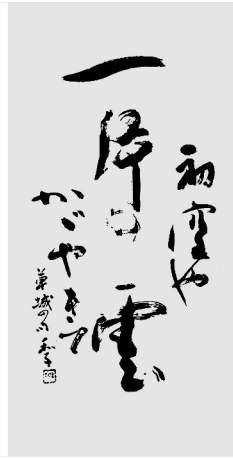 初空や
一片の雲
かゞやきて
草城の句